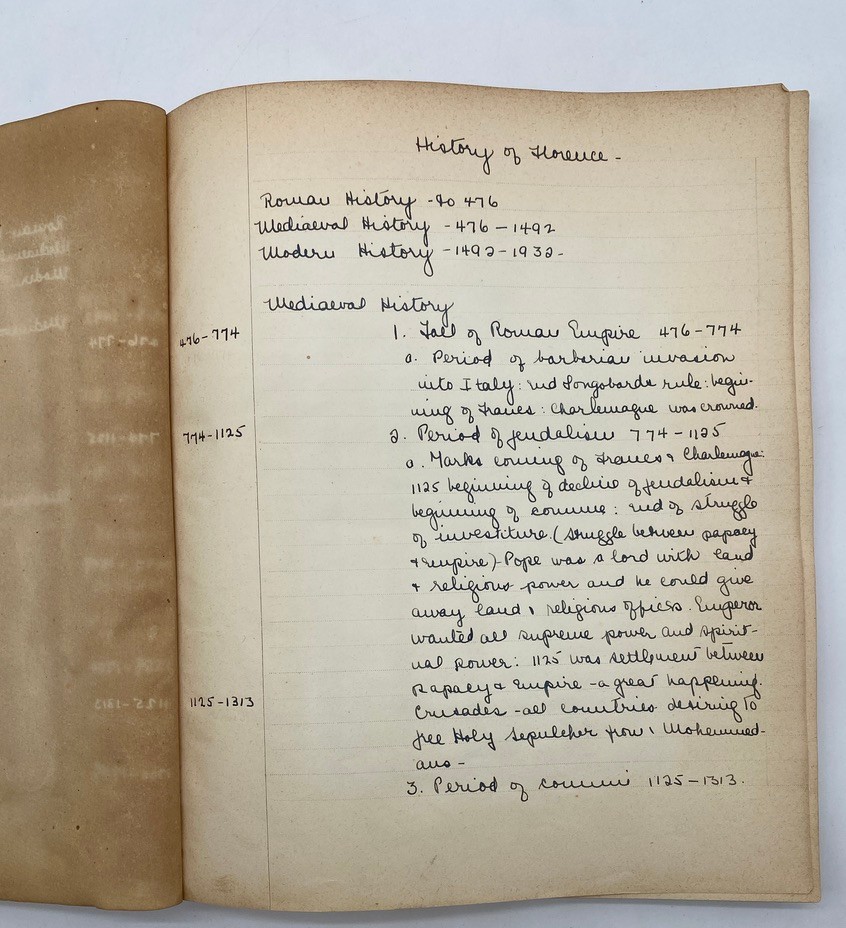 History of Florence -
Roman History - to 476
Mediaeval History - 476 - 1492
Modern History - 1492 - 1932 -
Mediaeval History
1. Fall of Roman Empire 476-774
476-774
a. Period of barbarian invasion
into Italy: end Longobards rule: begin-
ning of Francs: Charlemagne was crowned.
2. Period of feudalism 774-1125
774-1125
a. Marks coming of Francs & Charlemagne:
1125 beginning of decline of feudalism &
beginning of commune: end of struggle
of investiture. (struggle between papacy
& empire) - Pope was a lord with land
& religious power and he could give
away land & religious offices. Emperor
wanted all supreme power and spirit-
ual power: 1125 was settlement between
papacy & Empire - a great happening.
Crusades - all countries desiring to
1125-1313
free Holy Sepulcher from Mohammed-
ans -
3. Period of communi 1125-1313.